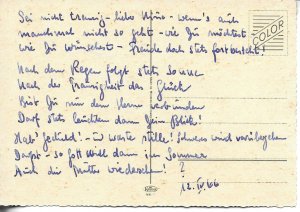 Sei nicht traurig - liebe Nöne - wenn's auch
manchmal nicht so geht - wie Du möchtest -
wie Du wünschest - Freude doch stets fortbesteht!
COLOR
Nach dem Regen folgt stets Sonne
Nach der Traurigkeit das Glück
Bist Du mir dem Herrn verbunden
Darf stets leuchten dann Dein Blick!
Hab' Geduld! - u warte stille! Schweres wird vorübergehen
Darfst - so Gott will dann im Sommer
Auch die Mutter wiedersehen!
?
12. IV. 66